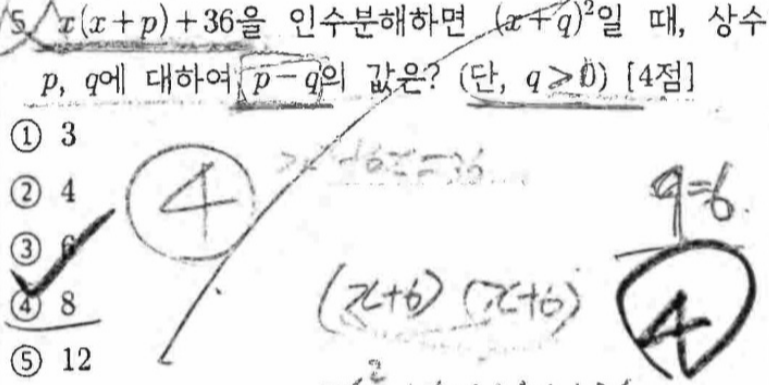 5. x(x+p)+36을 인수분해하면 (x+q)²일 때, 상수
p, q에 대하여 p-q의 값은? (단, q>0) [4점]
① 3
② 4
③ 6
④ 8
⑤ 12
4
q=6
(x+6)(x+6)
4